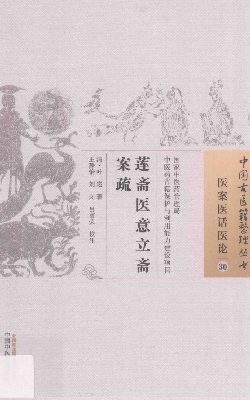 中国古医籍整理丛书
医案医话医论
30
国家中医药管理局
中医药古籍保护与利用能力建设项目
莲斋医意立斋
案疏
清·叶
校注
中国中医